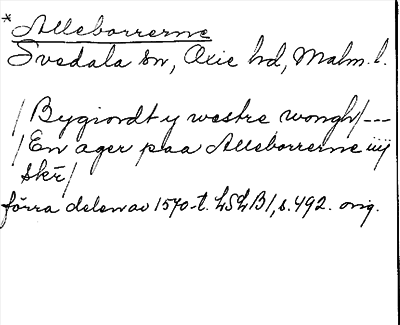 * Alleborrerne
Svedala sn, Oxie hd, Malm. l.
/Bygiordt y westre wongh/---
/En ager paa Alleborrerne iiij
skr/
förra delen av 1570-t. LSLB1, s. 492. orig.